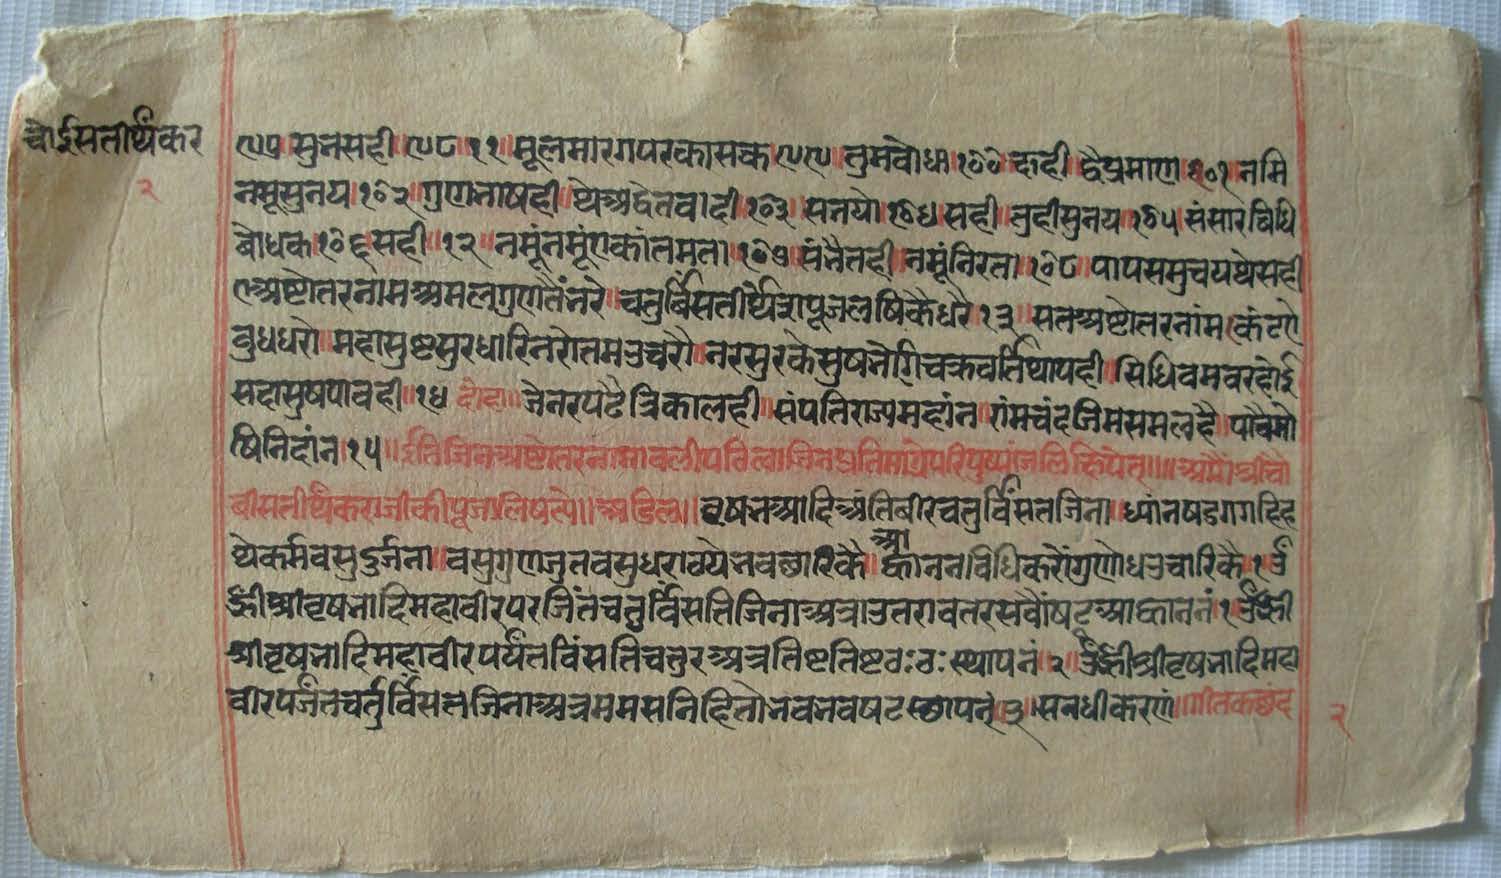 चोईसतीर्थंकर
२
९७ सुनसही ९८ ११ मूलमारगपरकासक ९९ तुमबोधा १०० कही द्वैप्रमाण १०१ नमि
नमूसुनय १०२ गुणभाषही थे अद्वैतवादी १०३ सनयो १०४ सही नुहीसुनय १०५ संसारविधि
बोधक १०६ सही १२ नमूंनमूंएकांतमता १०७ संनैतही नमूंनिरता १०८ पापसमुचयथेसही
अष्टोतरनामअमलगुणतैंनरे चतुर्विंसतीर्थेरापूजलषिकैधरै १३ सतअष्टोतरनांम कंठगे
बुधधरो महासुष्टसुरधारिनरोतमउचरौ नरसुरकेसुषभोगिचक्रवर्तिथापही सिधिवमवरहोई
सदासुषपावही १४ दोहा जेनरपढै त्रिकालही संपतिराज्यमहांन रांमचंदजिमसमलहै पावैमो
षिनिदांन १५ इतिजिनअष्टोतरनामावलीपठित्वाजिनप्रतिमाग्रेपरिपुष्पांजलिंक्षिपेत् अथ श्रीचौ
बीसतीर्थंकराजीकीपूजालिषते अडिल वृषभआदिअंतिबीरचतुर्विंसतजिना ध्यांनषडगगहिह
थेकर्मवसुदुर्जना वसुगुणजुतवसुधरा नवछारिकै आ ह्वाननविधिकरौंगुणोधउचारिकै १ ॐ
ह्रीश्रीवृषभादिमहावीरपरजिंतचतुर्विंसतिजिनाअत्राउतरावतरसवौंषट्आह्वाननं १ ॐह्री
श्रीवृषभादिमहावीरपर्यंतविंसतिचतुरअत्रतिष्टतिष्टठःठः स्थापनं २ ॐह्रीश्रीवृषभादिमहा
वीरपर्जंतचर्तुर्विंसतजिनाअत्रममसनिहितोभवभवषट स्छापनं ३ सनधीकरणं गीतकछंद
२